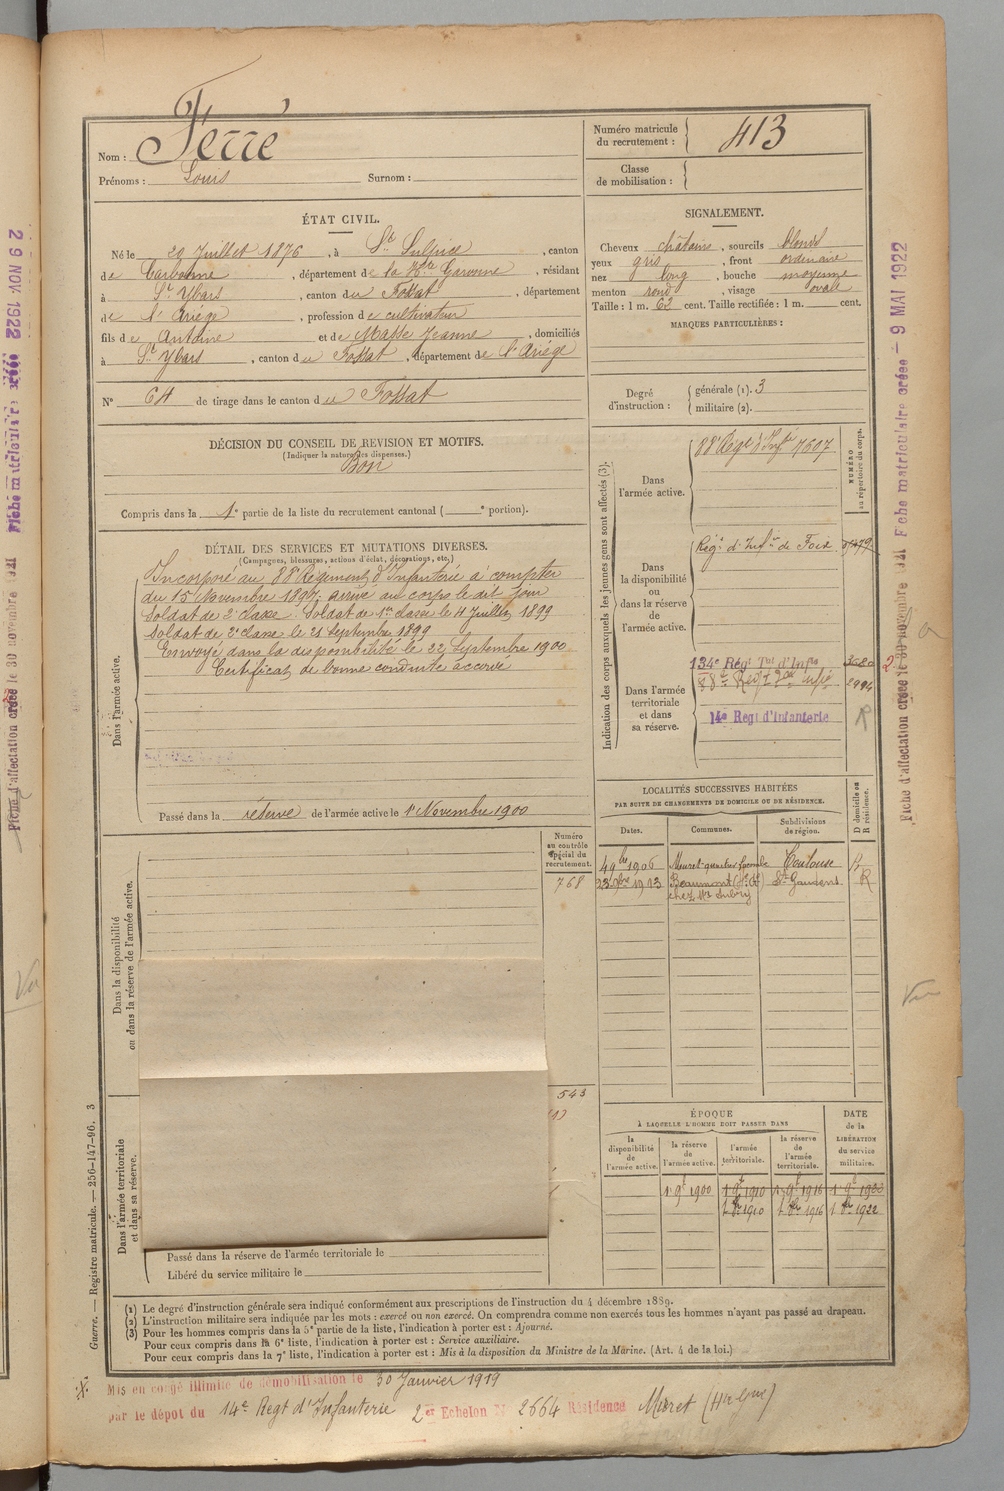 Nom : Ferré
Prénoms : Louis Surnom :
Numéro matricule
du recrutement : 413
Classe
de mobilisation :
ÉTAT CIVIL.
Né le 29 Juillet 1876, à St Sulpice, canton
de Carbonne, département de la Hte Garonne, résidant
à St Ybars, canton du Fossat, département
de l'Ariège, profession de cultivateur
fils de Antoine et de Masse Jeanne, domiciliés
à St Ybars, canton du Fossat, département de l'Ariège
N° 64 de tirage dans le canton du Fossat
SIGNALEMENT.
Cheveux châtains, sourcils blond
yeux gris, front ordinaire
nez long, bouche moyenne
menton rond, visage ovale
Taille : 1 m. 62 cent. Taille rectifiée : 1 m. cent.
MARQUES PARTICULIÈRES :
Degré
d'instruction :
générale (1). 3
militaire (2).
DÉCISION DU CONSEIL DE REVISION ET MOTIFS.
(Indiquer la nature des dispenses.)
Bon
Compris dans la 1e partie de la liste du recrutement cantonal ( e portion).
DÉTAIL DES SERVICES ET MUTATIONS DIVERSES.
(Campagnes, blessures, actions d'éclat, décorations, etc.)
Dans l'armée active.
Incorporé au 88e Régiment d'Infanterie à compter
du 15 Novembre 1897, arrivé au corps le dit jour
Soldat de 2e classe. Soldat de 1re classe le 11 Juillet 1899
Soldat de 2e classe le 21 Septembre 1899
Envoyé dans la disponibilité le 22 Septembre 1900
Certificat de bonne conduite accordé
Passé dans la réserve de l'armée active le 1er Novembre 1900
Indication des corps auxquels les jeunes gens sont affectés (3).
NUMÉRO
au répertoire du corps.
Dans
l'armée active.
88e Régt d'Infie 7607
Dans
la disponibilité
ou
dans la réserve
de
l'armée active.
Régt d'Infie de Foix
Dans l'armée
territoriale
et dans
sa réserve.
134e Régt Tal d'Infie
2994
14e Regt d'Infanterie
R
LOCALITÉS SUCCESSIVES HABITÉES
PAR SUITE DE CHANGEMENTS DE DOMICILE OU DE RÉSIDENCE.
Dates. Communes. Subdivisions
de région. D domicile ou
R résidence.
4 9bre 1906 Muret Toulouse R
1913 Beaumont (Hte Gne) St Gaudens R
Numéro
au contrôle
spécial du
recrutement.
768
Dans la disponibilité
ou dans la réserve de l'armée active.
543
Dans l'armée territoriale
et dans sa réserve.
Passé dans la réserve de l'armée territoriale le
Libéré du service militaire le
ÉPOQUE
À LAQUELLE L'HOMME DOIT PASSER DANS
la
disponibilité
de
l'armée active.
la réserve
de
l'armée active.
l'armée
territoriale.
la réserve
de
l'armée
territoriale.
DATE
de la
LIBÉRATION
du service
militaire.
1er 9bre 1900 1er 9bre 1910 1er 9bre 1916
1910 1916 1922
(1) Le degré d'instruction générale sera indiqué conformément aux prescriptions de l'instruction du 4 décembre 1889.
(2) L'instruction militaire sera indiquée par les mots : exercé ou non exercé. On comprendra comme non exercés tous les hommes n'ayant pas passé au drapeau.
(3) Pour les hommes compris dans la 5e partie de la liste, l'indication à porter est : Ajourné.
Pour ceux compris dans la 6e liste, l'indication à porter est : Service auxiliaire.
Pour ceux compris dans la 7e liste, l'indication à porter est : Mis à la disposition du Ministre de la Marine. (Art. 4 de la loi.)
Mis en congé illimité de démobilisation le 30 Janvier 1919
par le dépôt du 14e Regt d'Infanterie 2er Echelon N° 2664 Résidence Muret (Hte Gne)
Guerre. — Registre matricule. — 256-147-96. 3
Fiche matriculaire créée 29 NOV 1922
Fiche d'affectation créée le 30 novembre
Fiche matriculaire créée — 9 MAI 1922
Fiche d'affectation créée le 30 novembre
Vu
Vu